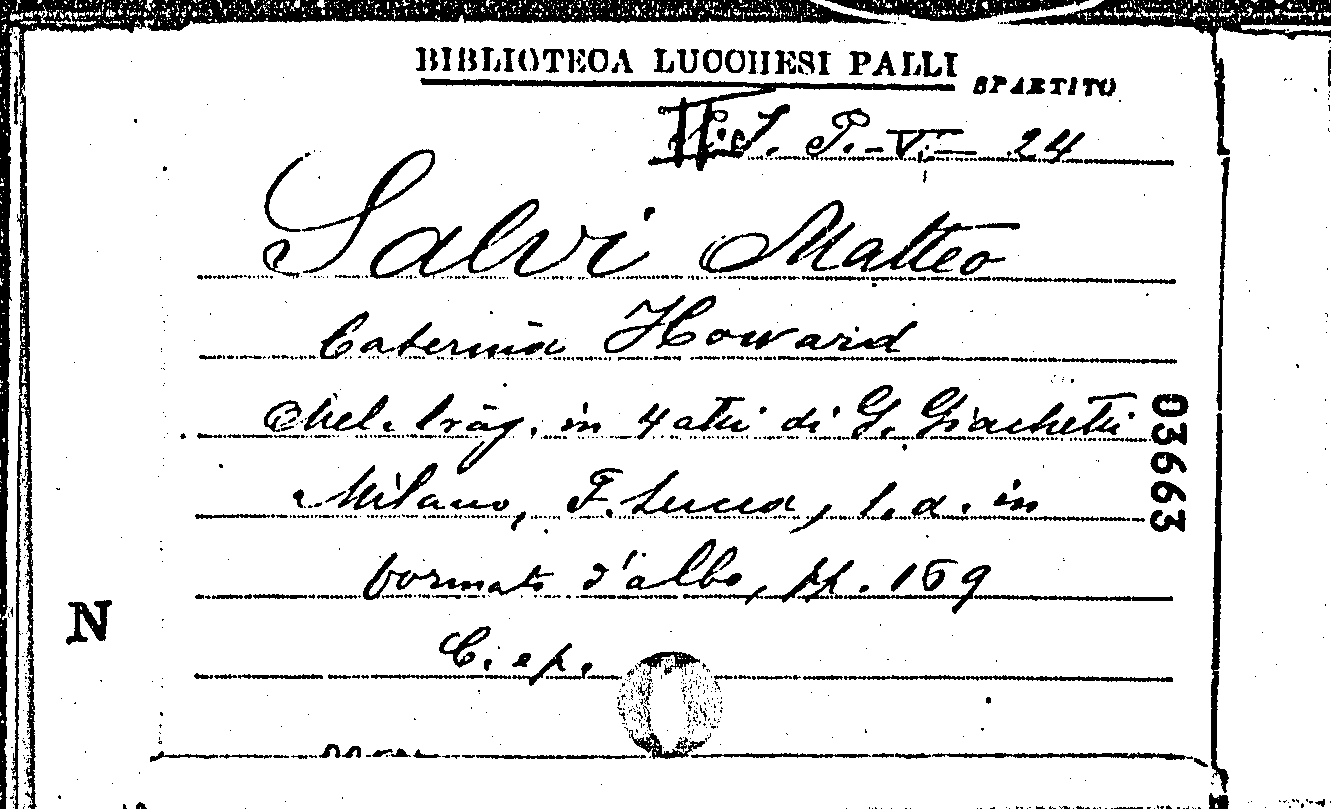 BIBLIOTECA LUCCHESI PALLI
SPARTITO
P.-VI- 24
Salvi Matteo
Caterina Howard
Mel. trag. in 4 atti di G. Giachetti
Milano, F. Lucca, s.d. in
formato d'albo, pp. 159
C. ep.
03663
N